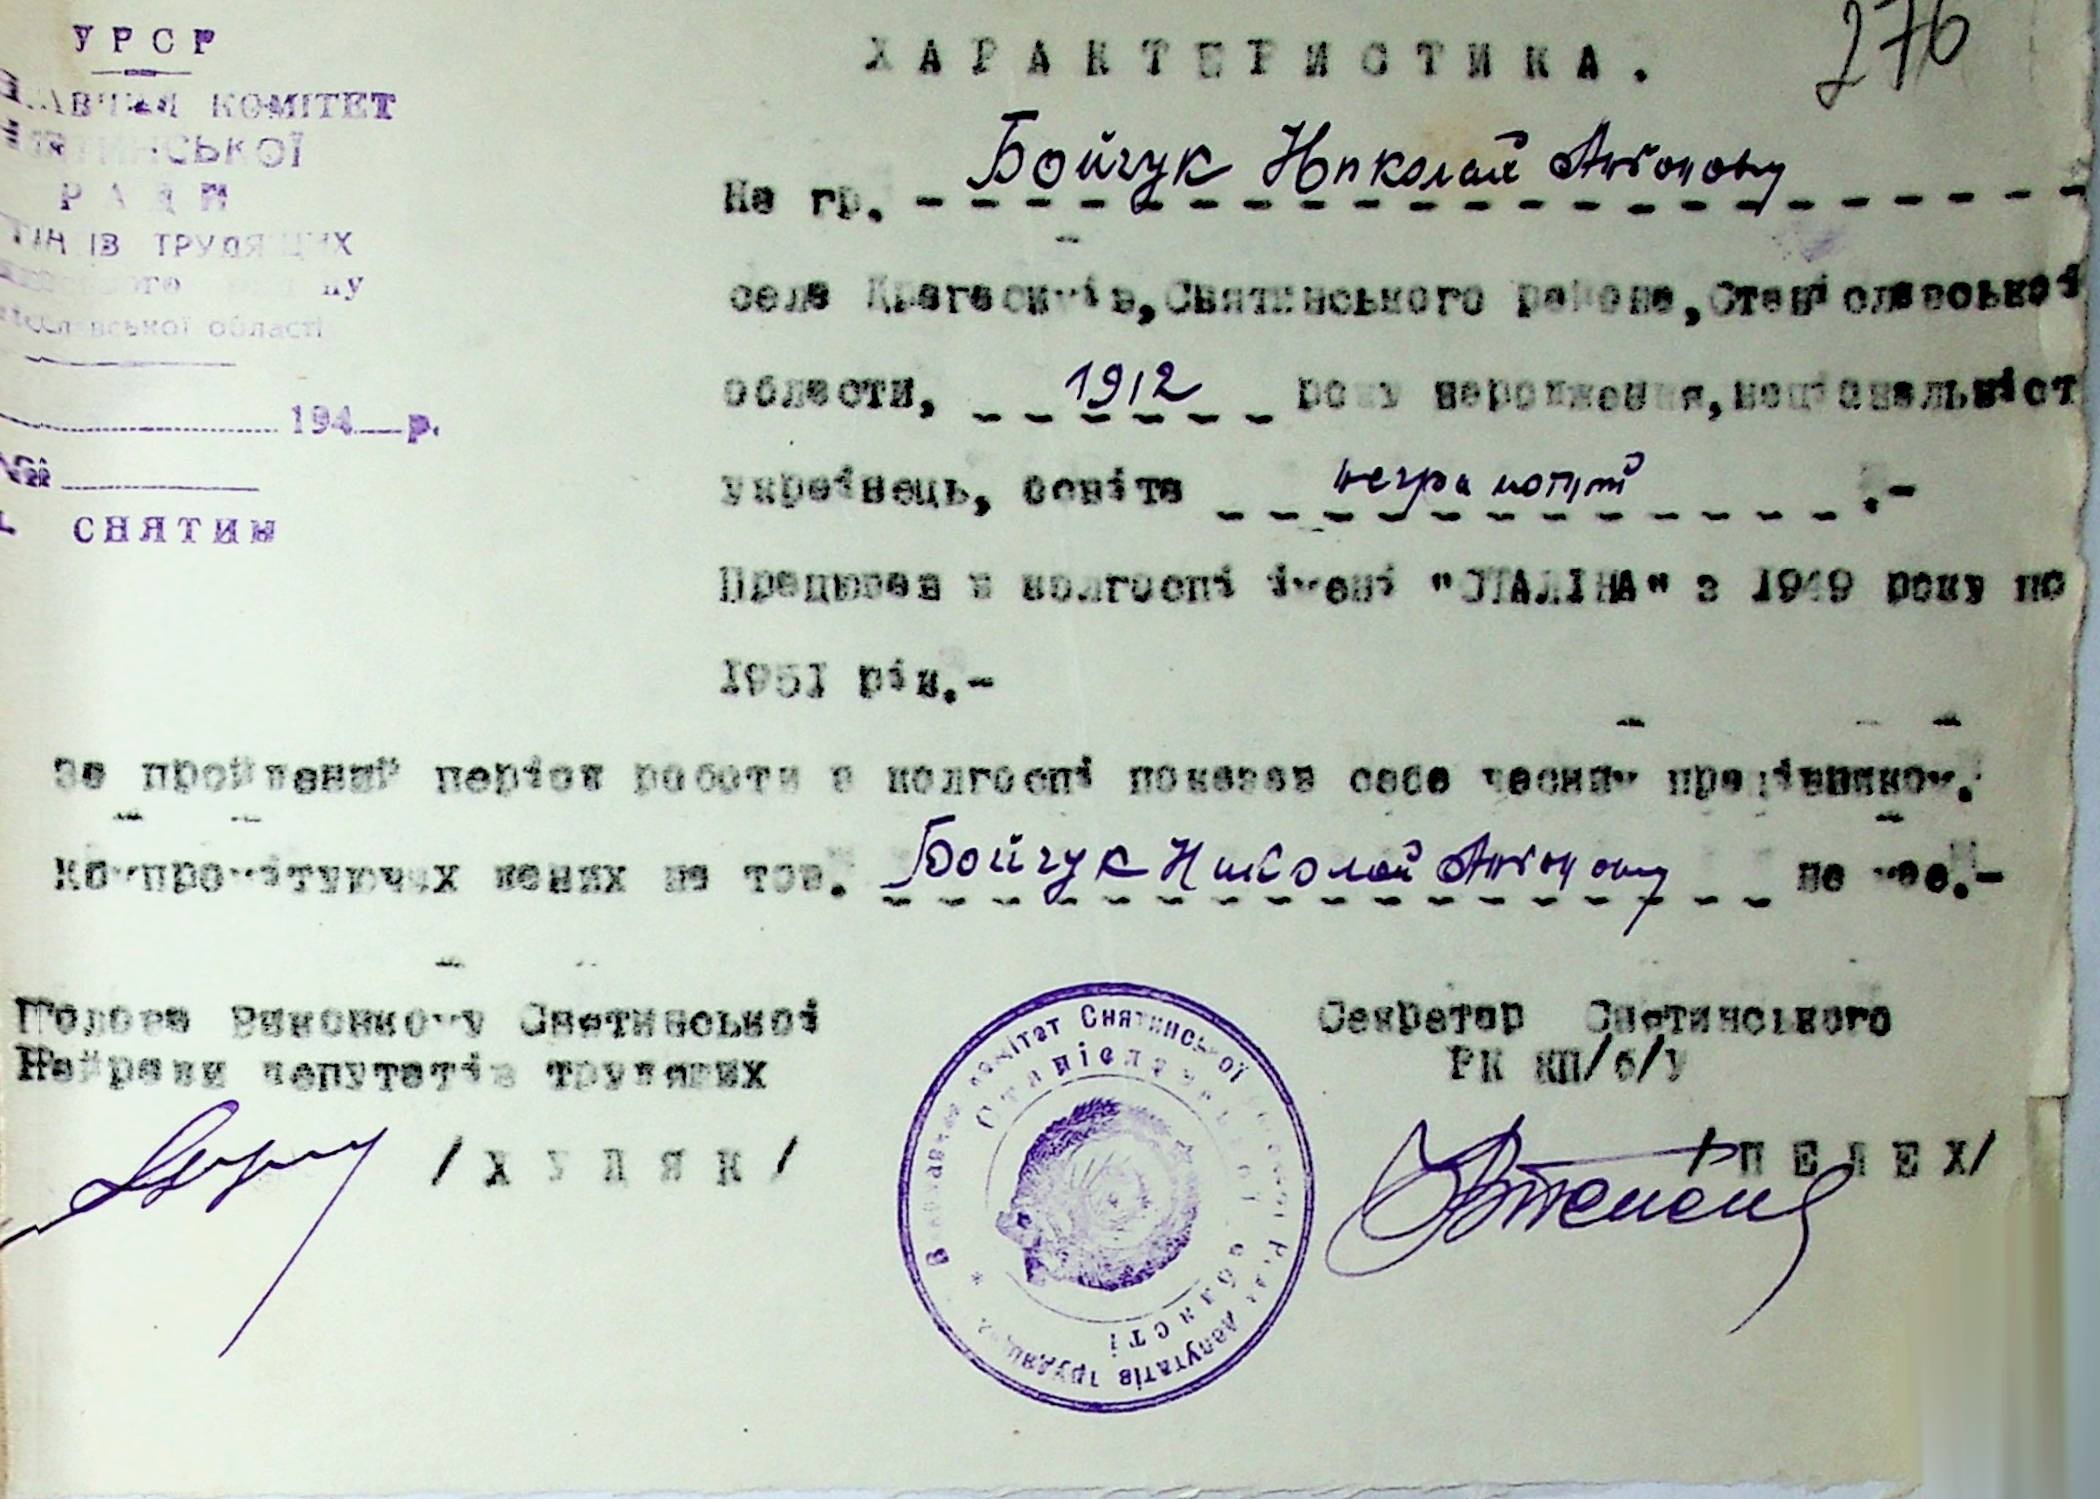 276
УРСР
КОМІТЕТ
СНЯТИНСЬКОЇ
РАДИ
ТРУДЯЩИХ
області
194 р.
№
СНЯТИН
ХАРАКТЕРИСТИКА.
На гр. Бойчук Николай Антонову
села Драгасимів, Снятинського района, Станіславської
области, 1912 року народження, національніст
українець, освіта неграмотний.-
Працював в колгоспі імені "СТАЛІНА" з 1949 року по
1951 рік.-
За пройдений період роботи в колгоспі показав себе чесним працівником.
Компромітуючих даних на тов. Бойчук Николай Антонову не має.-
Голова Виконкому Снятинської
Райради депутатів трудящих
/ХУДЯК/
Секретар Снятинського
РК КП/б/У
/ПЕЛЕХ/
Виконавчий комітет Снятинської районної Ради депутатів трудящих *
Станіславської області